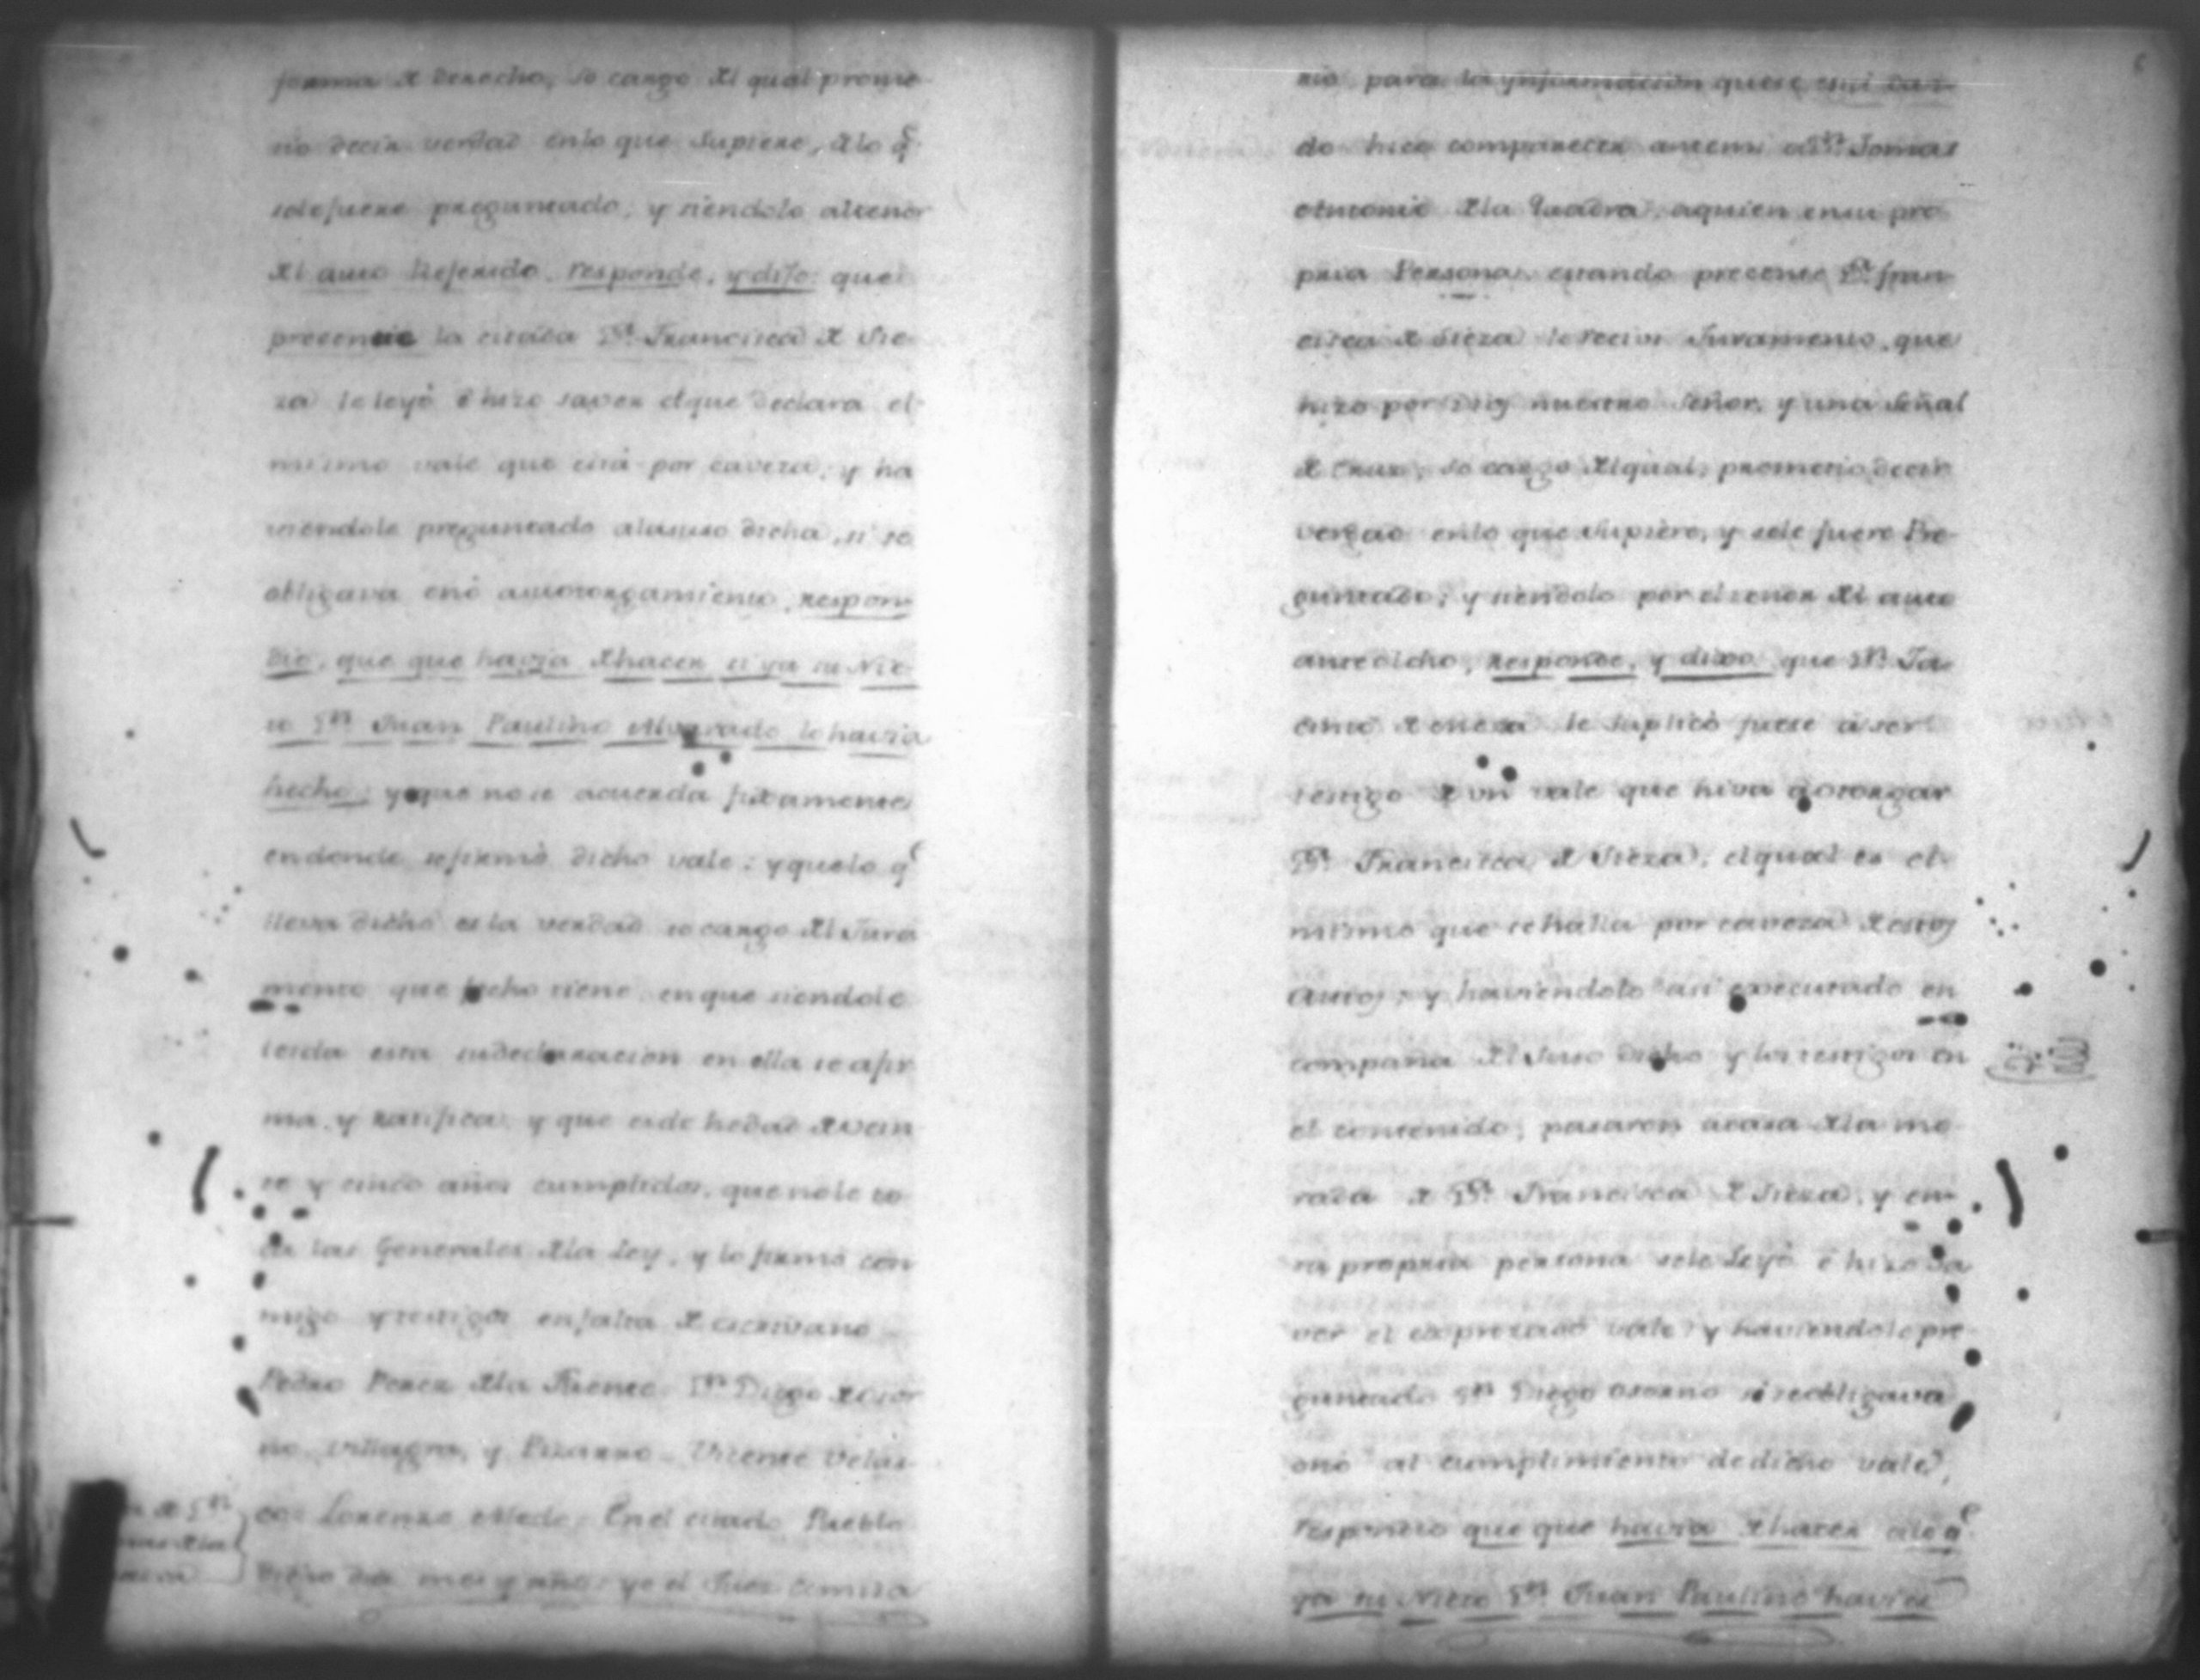 forma de derecho, so cargo del qual prome
tio decir verdad enlo que Supiere, delo q.e
sele fuere preguntado, y siendolo altenor
del auto Referido, responde, y dijo que
presente la citada D.ª Francisca de Sie
za le leyó é hizo saver elque declara el
mismo vale que está por caveza; y ha
viendole preguntado alasuso dicha, si se
obligava onó asuotorgamiento, respon
dio, que que havia dehacer si ya su Nie
to D.n Juan Paulino Alvarado lo havia
hecho; y que no se acuerda fixamente
endonde sefirmó dicho vale: y quelo q.e
lleva dicho es la verdad so cargo del Jura
mento que fecho tiene, en que siendole
leida esta sudeclaracion en ella se afir
ma, y ratifica, y que es de hedad de vein
te y cinco años cumplidos, que no le to
can las Generales dela Ley, y lo firmó con
migo y testigos enfalta de escrivano
Pedro Perez dela Fuente D.n Diego de Osor
no, Villagra, y Pizarro = Vicente Velas
co = Lorenzo = En el citado Pueblo
Dicho dia mes y año: yo el Juez comisa
rio para la ynformacion quese
do hice comparecer antemi a D.n Tomas
Antonio dela Quadra, aquien ensu pro
pria Persona, estando precente D.ª fran
cisca de Sieza le reciví Juramento, que
hizo por Dios nuestro Señor, y una Señal
de Cruz, so cargo delqual, prometio decir
verdad enlo que Supiere, y sele fuere Pre
guntado; y siendolo por el tenor del auto
antedicho, responde, y dixo que D.n Ja
cinto de le Suplicó fuese á ser
testigo de un vale que hiva á otorgar
D.ª Francisca de Sieza, elqual es el
mismo que se halla por caveza de estos
Autos; y haviendolo asi executado en
compañia del Suso dicho y los testigos en
el contenido, pasaron acasa dela mo
rada de D.ª Francisca de Sieza, y en
su propria persona sele Leyó é hizo Sa
ver el expresado vale, y haviendole pre
guntado D.n Diego Osorno si seobligava
onó al cumplimiento dedicho vale,
respondio que que havia dehacer alo q.e
ya su Nieto D.n Juan Paulino havia